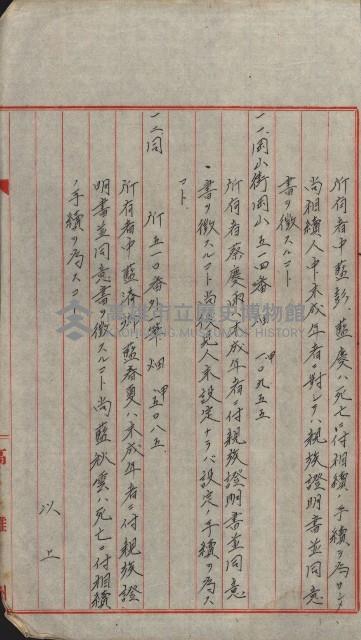 所有者中藍彭、藍慶ハ死亡ニ付相續ノ手續ヲ為サシメ
尚相續人中未成年者ニ對シテハ親族證明書並同意
書ヲ徴スルコト
一一、岡山街岡山五一四番 畑 甲一〇九五五
所有者蔡慶 ハ未成年者ニ付親族證明書並同意
書ヲ徴スルコト尚後見人未設定ナラバ設定ノ手續ヲ為ス
コト、
一二、同 所五一〇番外 筆 畑 甲五〇八五、
所有者中藍 、藍春夏ハ未成年者ニ付親族證
明書並同意書ヲ徴スルコト尚藍秋雲ハ死亡ニ付相續
ノ手續ヲ為スコト
以上
高雄
高雄市立歷史博物館
KAOHSIUNG MUSEUM OF HISTORY